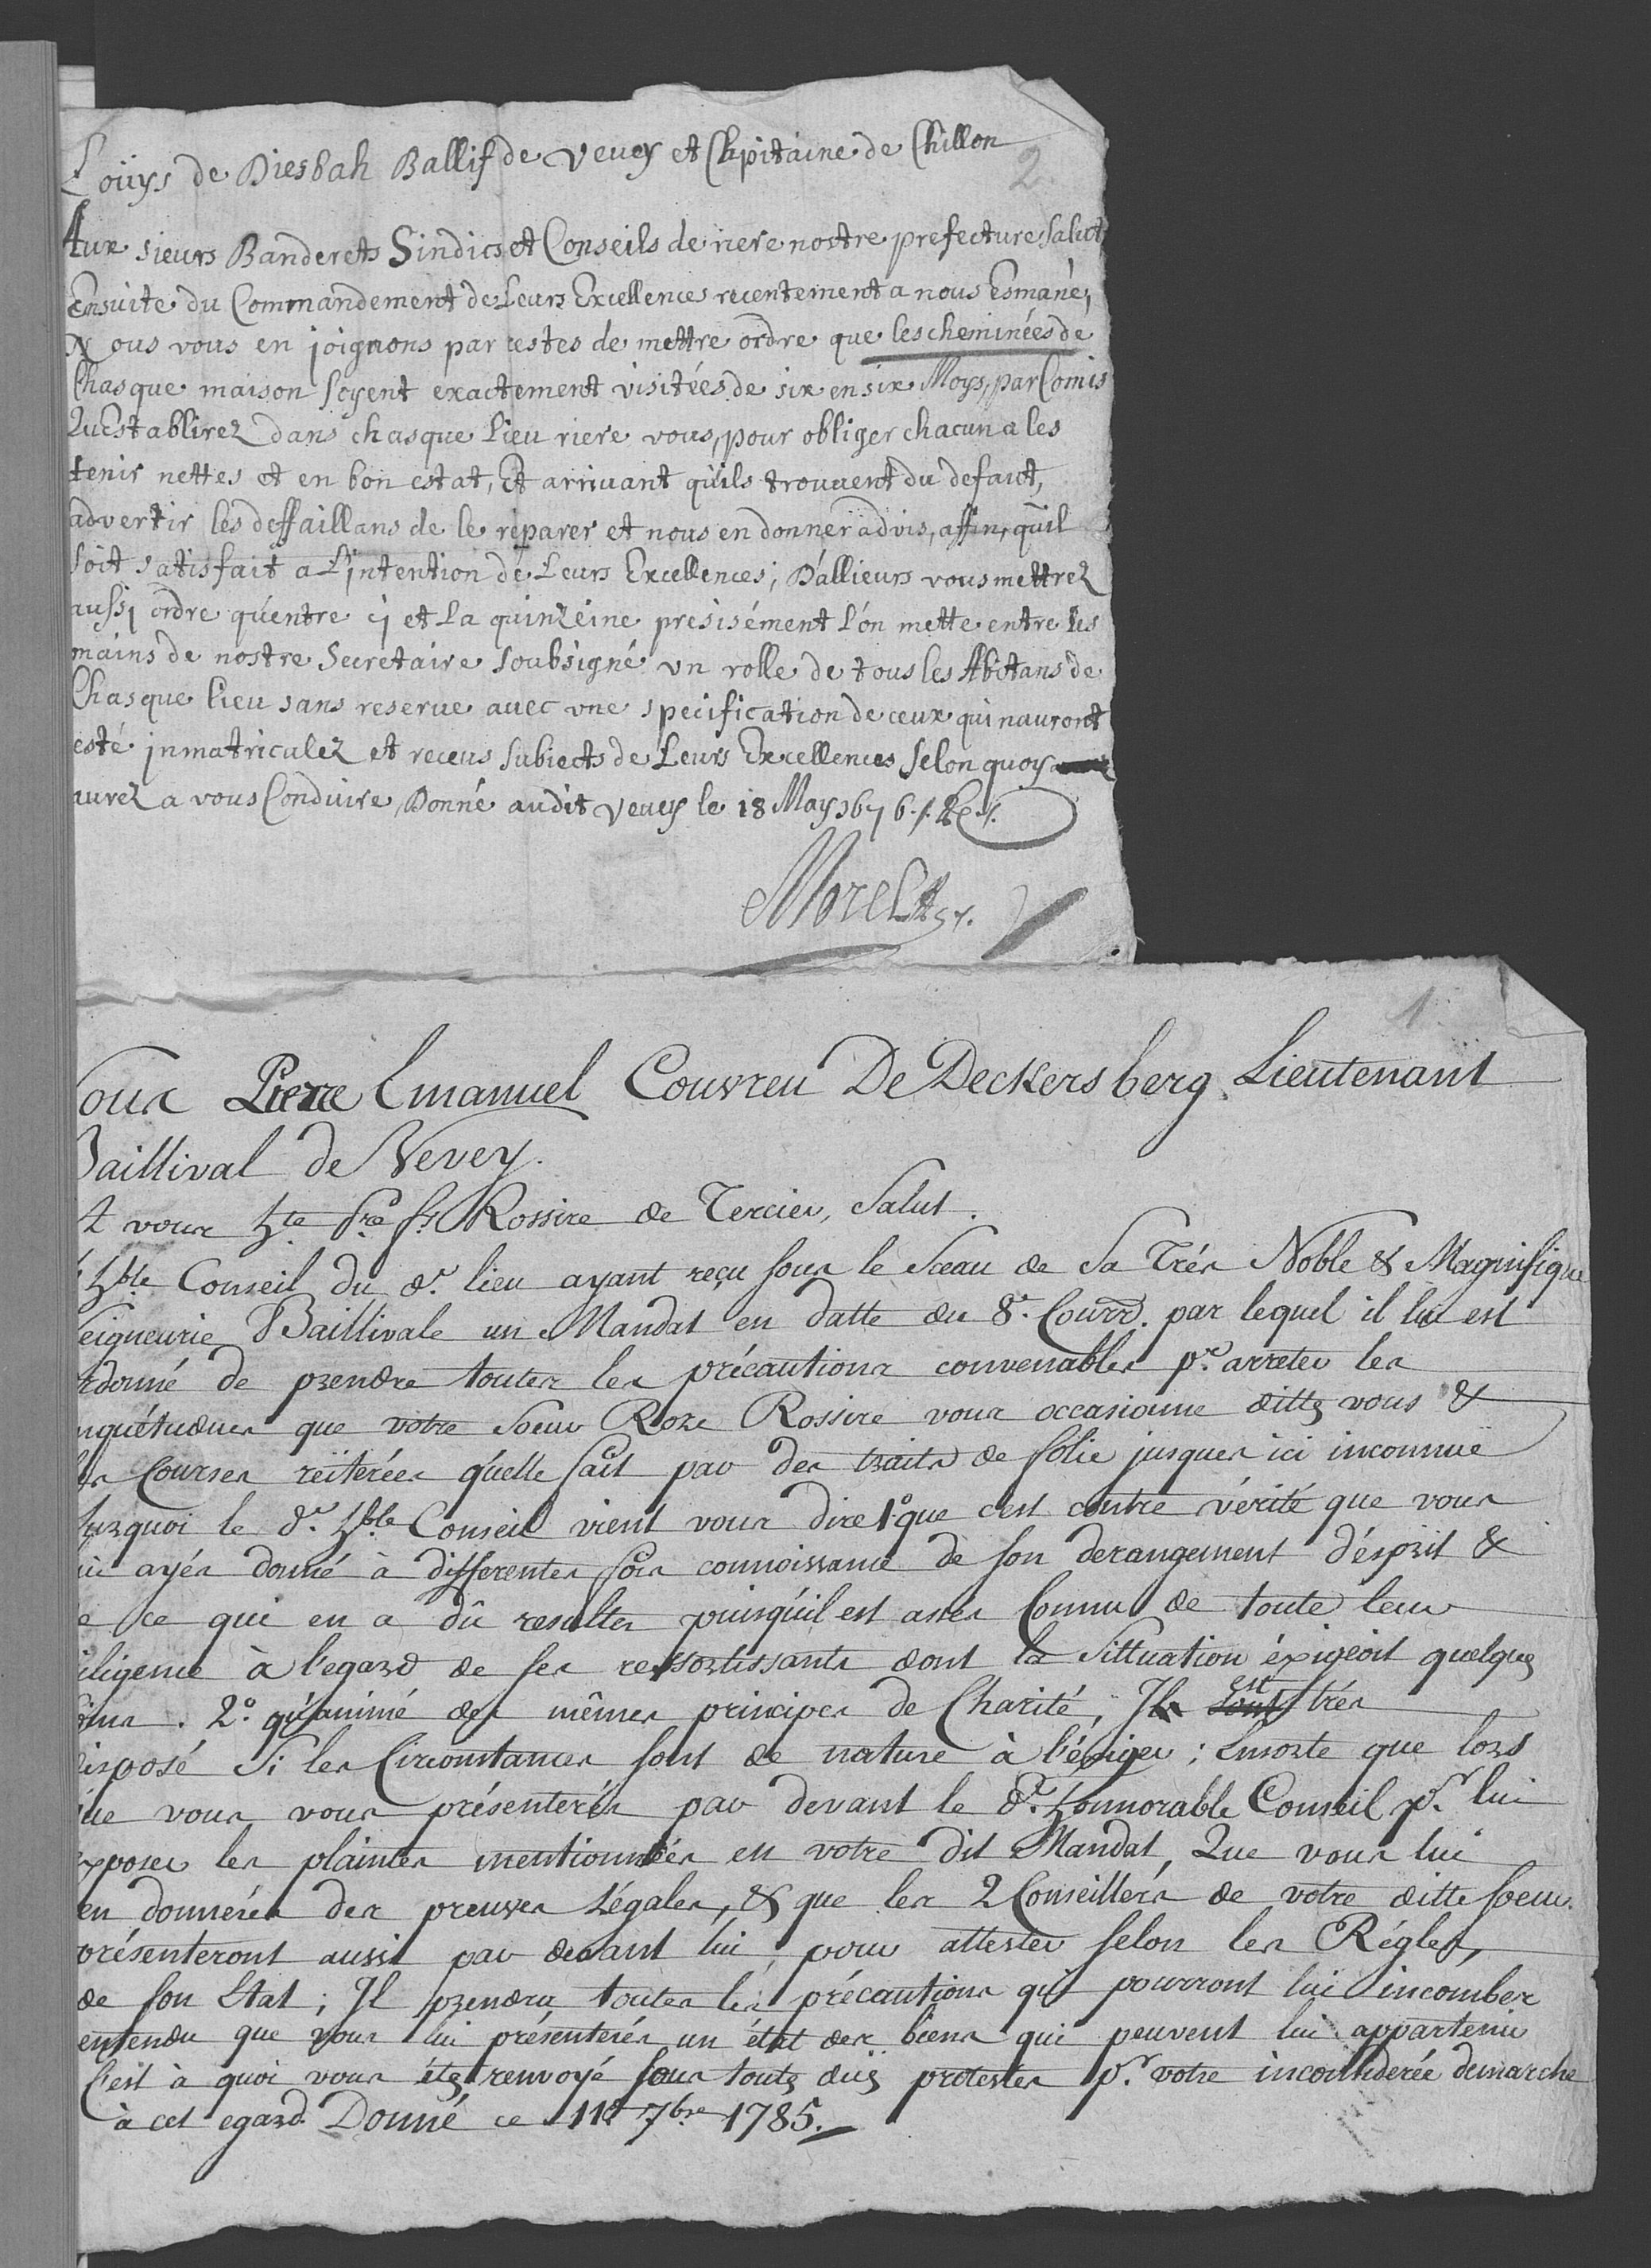 Loüys de Diesbah Ballif de Vevey et Capitaine de Chillon
2
Aux sieurs Banderets Sindics et Conseils de riere nostre prefecture Salut
Ensuite du Commandement de Leurs Excellences recentement a nous Esmané,
Nous vous en joignons par cestes de mettre ordre que les cheminées de
Chasque maison soyent exactement visitées de six en six Moys, par Comis
Qu'Establirez dans chasque Lieu riere vous, pour obliger chacun a les
tenir nettes et en bon estat, Et arrivant qu'ils trouvent du defaut,
advertir les deffaillans de le réparer et nous en donner advis, affin, qu'il
soit satisfait a L'intention de Leurs Excellences; D'allieurs vous mettrez
aussi ordre qu'entre cj et La quinzeine presisément L'on mette entre les
mains de nostre Secretaire soubsigné vn rolle de tous les Abitans de
Chasque lieu sans reserve avec vne specification de ceux qui nauront
esté inmatriculez et receus subiects de Leurs Excellences selon quoy
aurez a vous Conduire, Donné audit Vevey le 18 May 1676
Morel
1
Nous Pierre Emanuel Couvreu De Deckersberg Lieutenant
Baillival de Vevey.
A vous hte. Rossire de Tercier, Salut.
hble. Conseil du dt. lieu ayant reçu sous le Sceau de Sa Trés Noble & Magnifique
Seigneurie Baillivale un Mandat en datte du 8e. Courrt. par lequel il lui est
ordonné de prendre toutes les précautions convenables pr. arreter les
inquétudes que votre Soeur Roze Rossire vous occasionne dittes vous &
les Courses reïterées qu'elle fait par des traits de folie jusques ici inconnuë
surquoi le dt. hble Conseil vient vous dire 1o. que c'est contre vérité que vous
lui ayés donné à differentes fois connoissance de son derangement d'ésprit &
de ce qui en a dû resulter puisqu'il est assés Connu de toute leur
diligence à l'egard de ses ressortissants dont la Sittuation éxigeoit quelques
soins. 2o. qu'animé des mêmes principes de Charité, Il est trés
disposé Si les Circonstances sont de nature à l'éxiger; Ensorte que lors
que vous vous présenterés par devant le dt. honnorable Conseil pr. lui
exposer les plaintes mentionnées en votre dit Mandat, Que vous lui
en donnerés des preuves Légales, & que les 2 Conseillers de votre ditte soeur
présenteront aussi par devant lui, pour attester selon les Régles,
de son Etat; Il prendra toutes les précautions qui pourront lui incomber
entendu que vous lui présenterés un état des biens qui peuvent lui appartenir
C'est à quoi vous étes renvoyé sous toutes duës protestes pr. votre inconsiderée demarche
à cet egard. Donné ce 11e 7bre 1785.